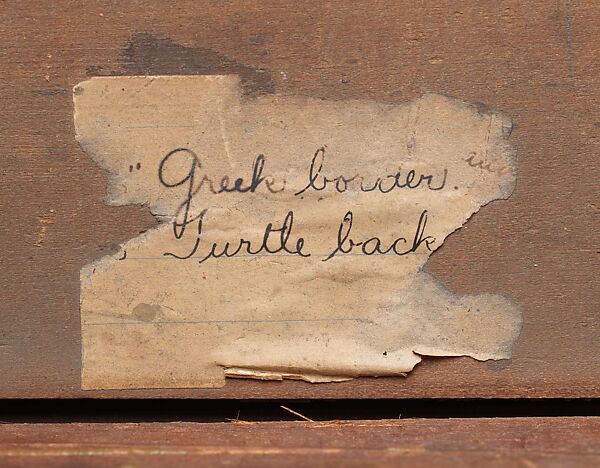 " Greek border.
, Turtle back